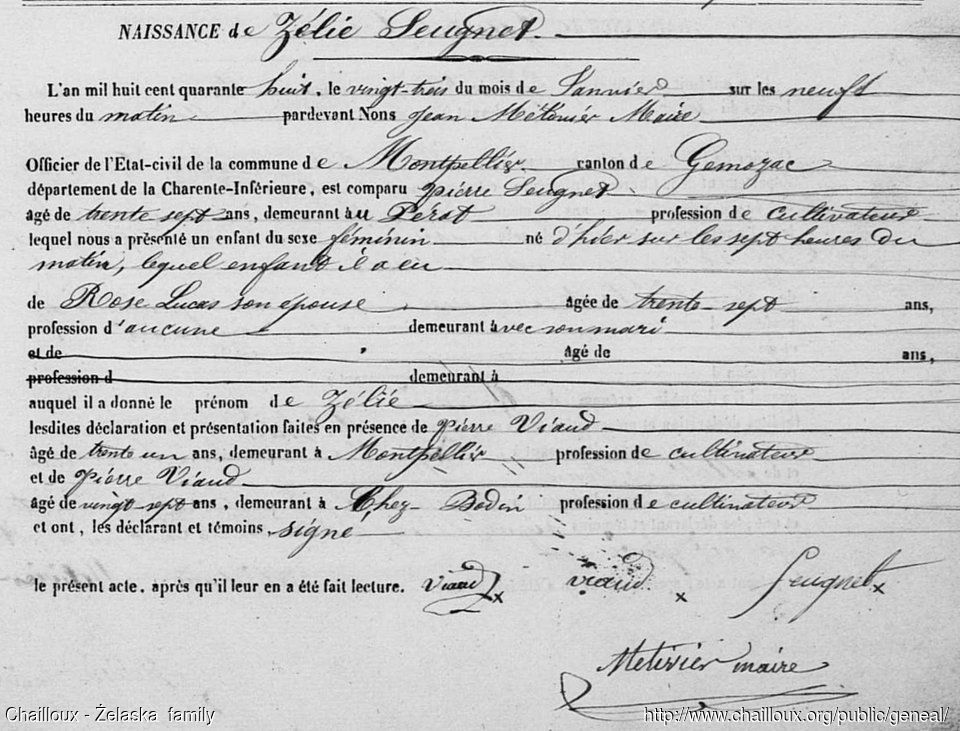 NAISSANCE de Zélie Seugnet.
L'an mil huit cent quarante huit, le vingt-trois du mois de Janvier sur les neuft
heures du matin pardevant Nous Jean Métivier Maire
Officier de l'Etat-civil de la commune de Montpellier canton de Gemozac
département de la Charente-Inférieure, est comparu pierre Seugnet
âgé de trente sept ans, demeurant au Pérat profession de cultivateur
lequel nous a présenté un enfant du sexe féminin né d'hier sur les sept heures du
matin, lequel enfant il a eu
de Rose Lucas son épouse âgée de trente-sept ans,
profession d'aucune demeurant avec son mari
et de âgé de ans,
profession d demeurant à
auquel il a donné le prénom de Zélie
lesdites déclaration et présentation faites en présence de pierre Viaud
âgé de trente un ans, demeurant à Montpellier profession de cultivateur
et de pierre Viaud
âgé de vingt-sept ans, demeurant à Chez Bodin profession de cultivateur
et ont, les déclarant et témoins, signé
le présent acte, après qu'il leur en a été fait lecture. Viaud x viaud x Seugnet x
Metivier maire
Chailloux - Żelaska family http://www.chailloux.org/public/geneal/